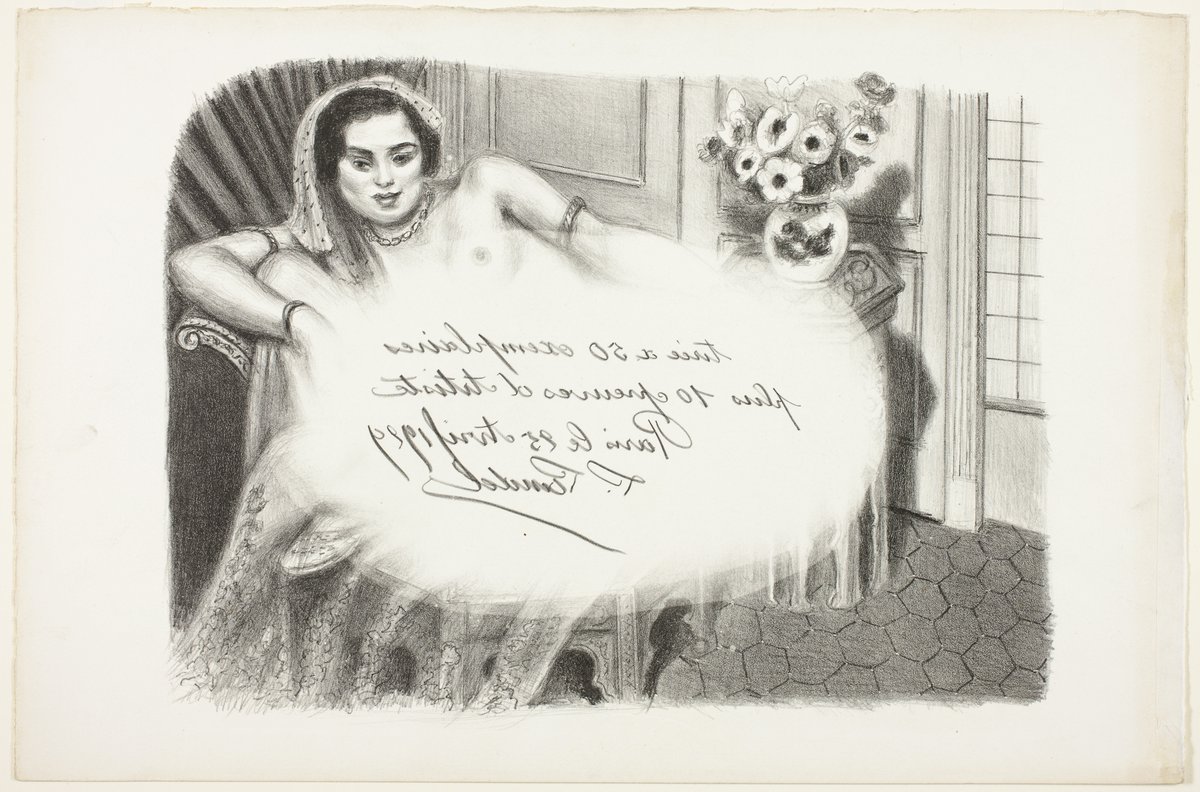 tirée a 50 exemplaires
plus 10 epreuves d'Artiste
Paris le 25 Avril 1929